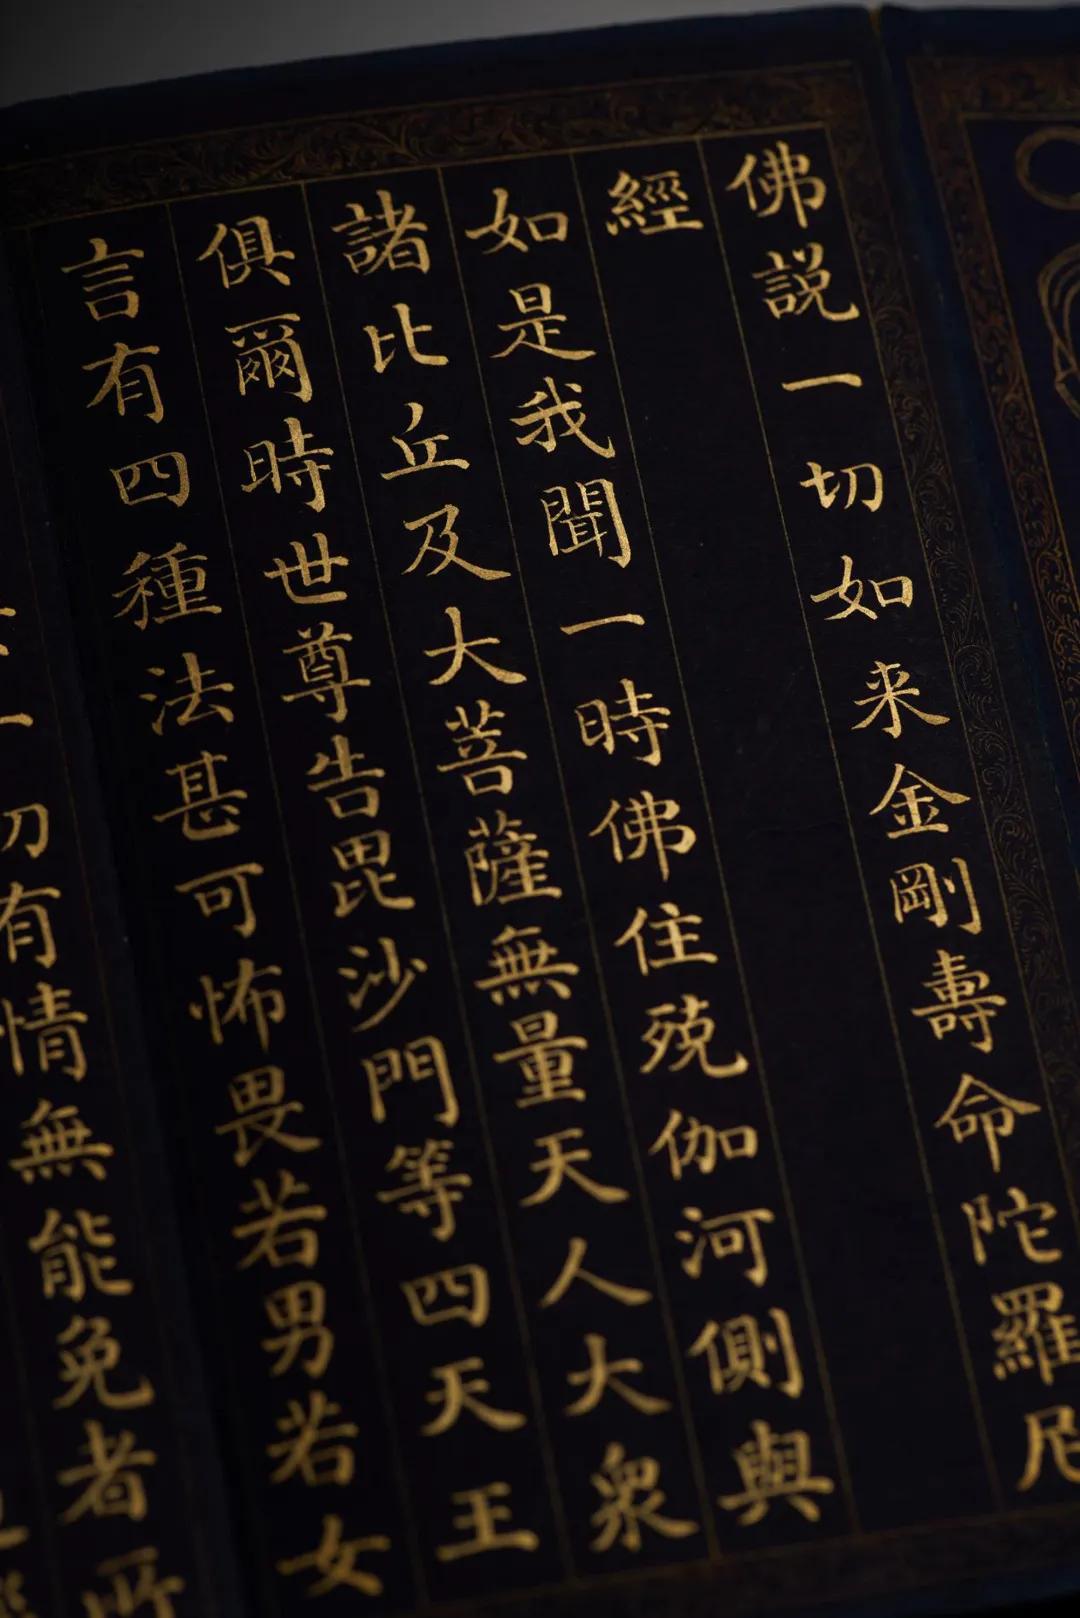 佛説一切如来金剛壽命陀羅尼
經
如是我聞一時佛住殑伽河側與
諸比丘及大菩薩無量天人大衆
俱爾時世尊告毘沙門等四天王
言有四種法甚可怖畏若男若女
切有情無能免者所